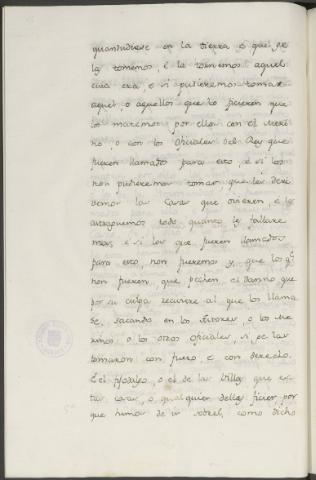 quantudiese en la tierra e que ge
lo tomemos, e la tornemos aquel
cuia era, e si pudieremos tomar
aquel o aquellos que lo ficieren que
lo matemos por ello con el Meri
no, o con los oficiales del Rey que
fueren llamados para esto, e si los
non pudieremos tomar que les derri
bemos las Casas que ovieren, e les
astraguemos todo quanto les fallare
mos, e si los que fueren llamados
para esto, non fueremos y, que los qe
non fueren, que pechen el danno que
por su culpa reciviere al que los llama
se, sacando en los Autores, o los Me
rinos, o los otros oficiales, si ge las
tomaron con fuero, e con derecho.
E el fijodalgo, o el de las Villas que es
tas cosas, o qualquier dellas ficier por
que hamos de ir sobrel, como dicho